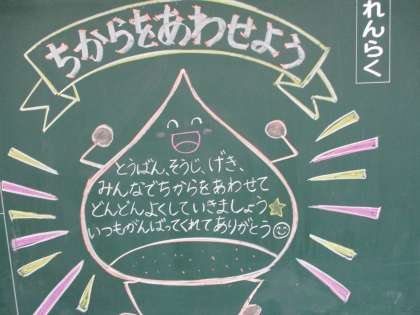 れんらく
ちからをあわせよう
とうばん、そうじ、げき、
みんなでちからをあわせて
どんどんよくしていきましょう
いつもがんばってくれてありがとう